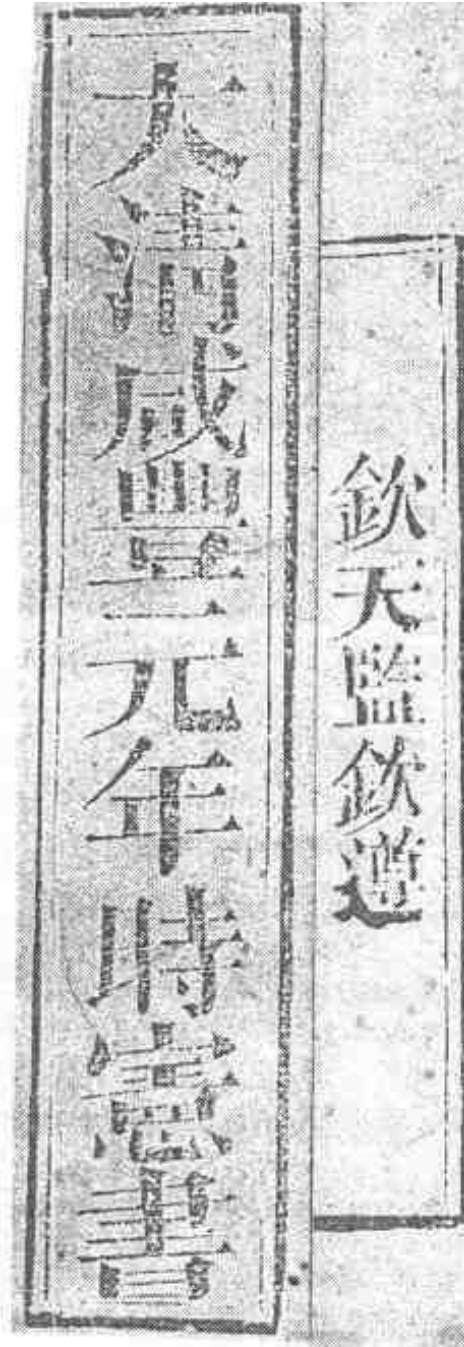 欽天監欽遵
大清咸豐元年時憲書